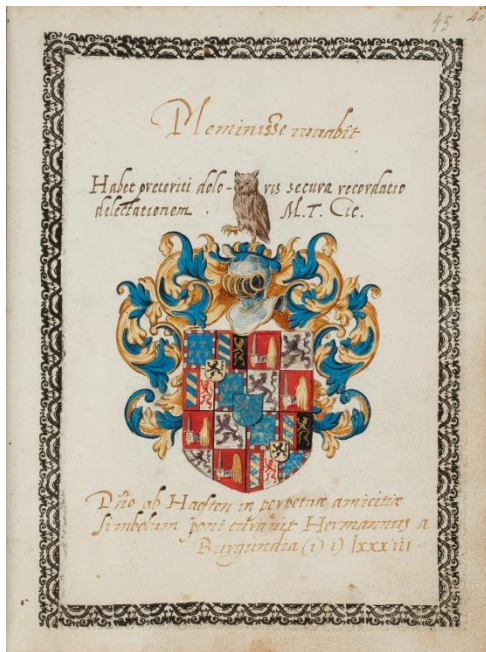 45
Meminisse iuuabit
Habet preteriti dolo- ris secura recordatio
delectationem . M.T. Cic.
Dño ab Haeften in perpetuæ amicitiæ
simbolum poni curauit Hermannus a
Burgundia (I) I) lxxxiii